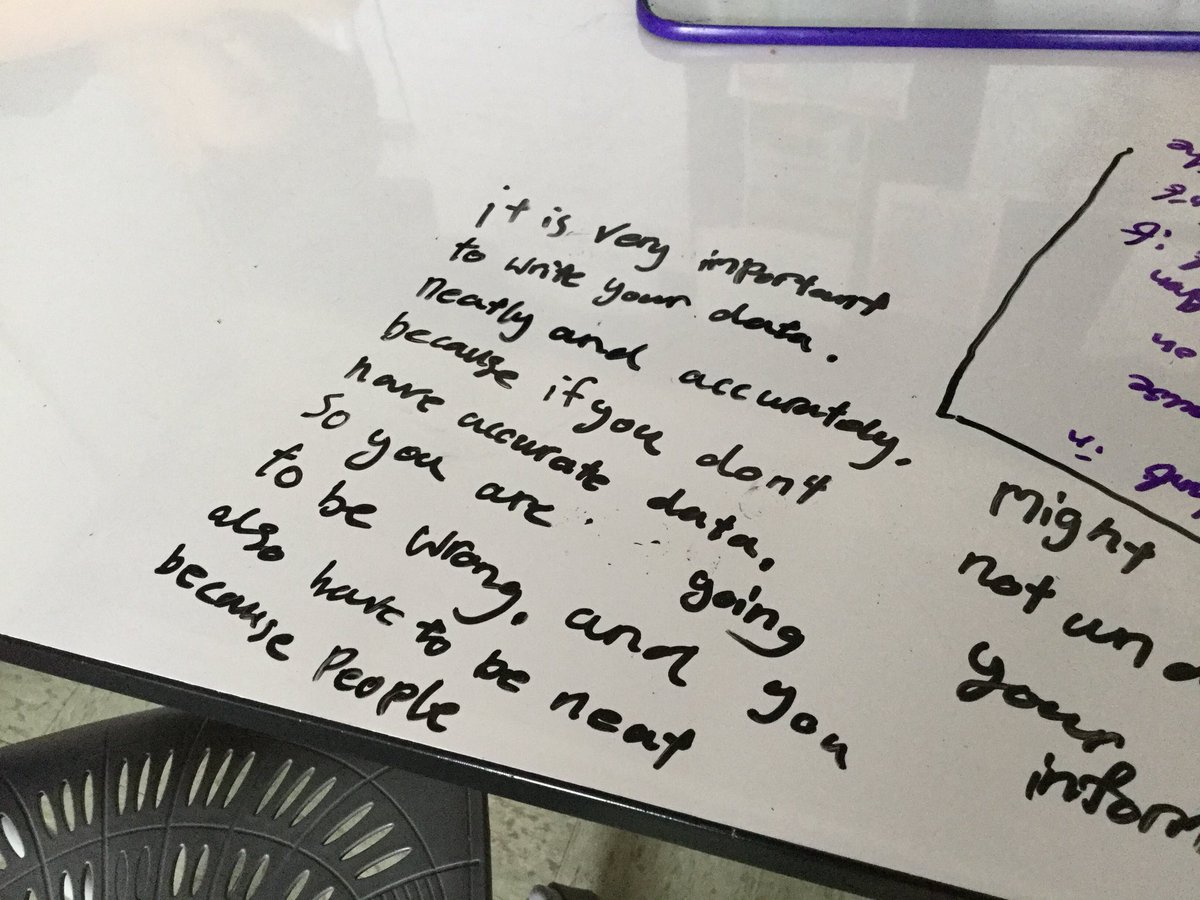 it is very important
to write your data.
neatly and accurately.
because if you don't
have accurate data.
so you are. going
to be wrong. and you
also have to be neat
because people
might
not und
your
inform
in